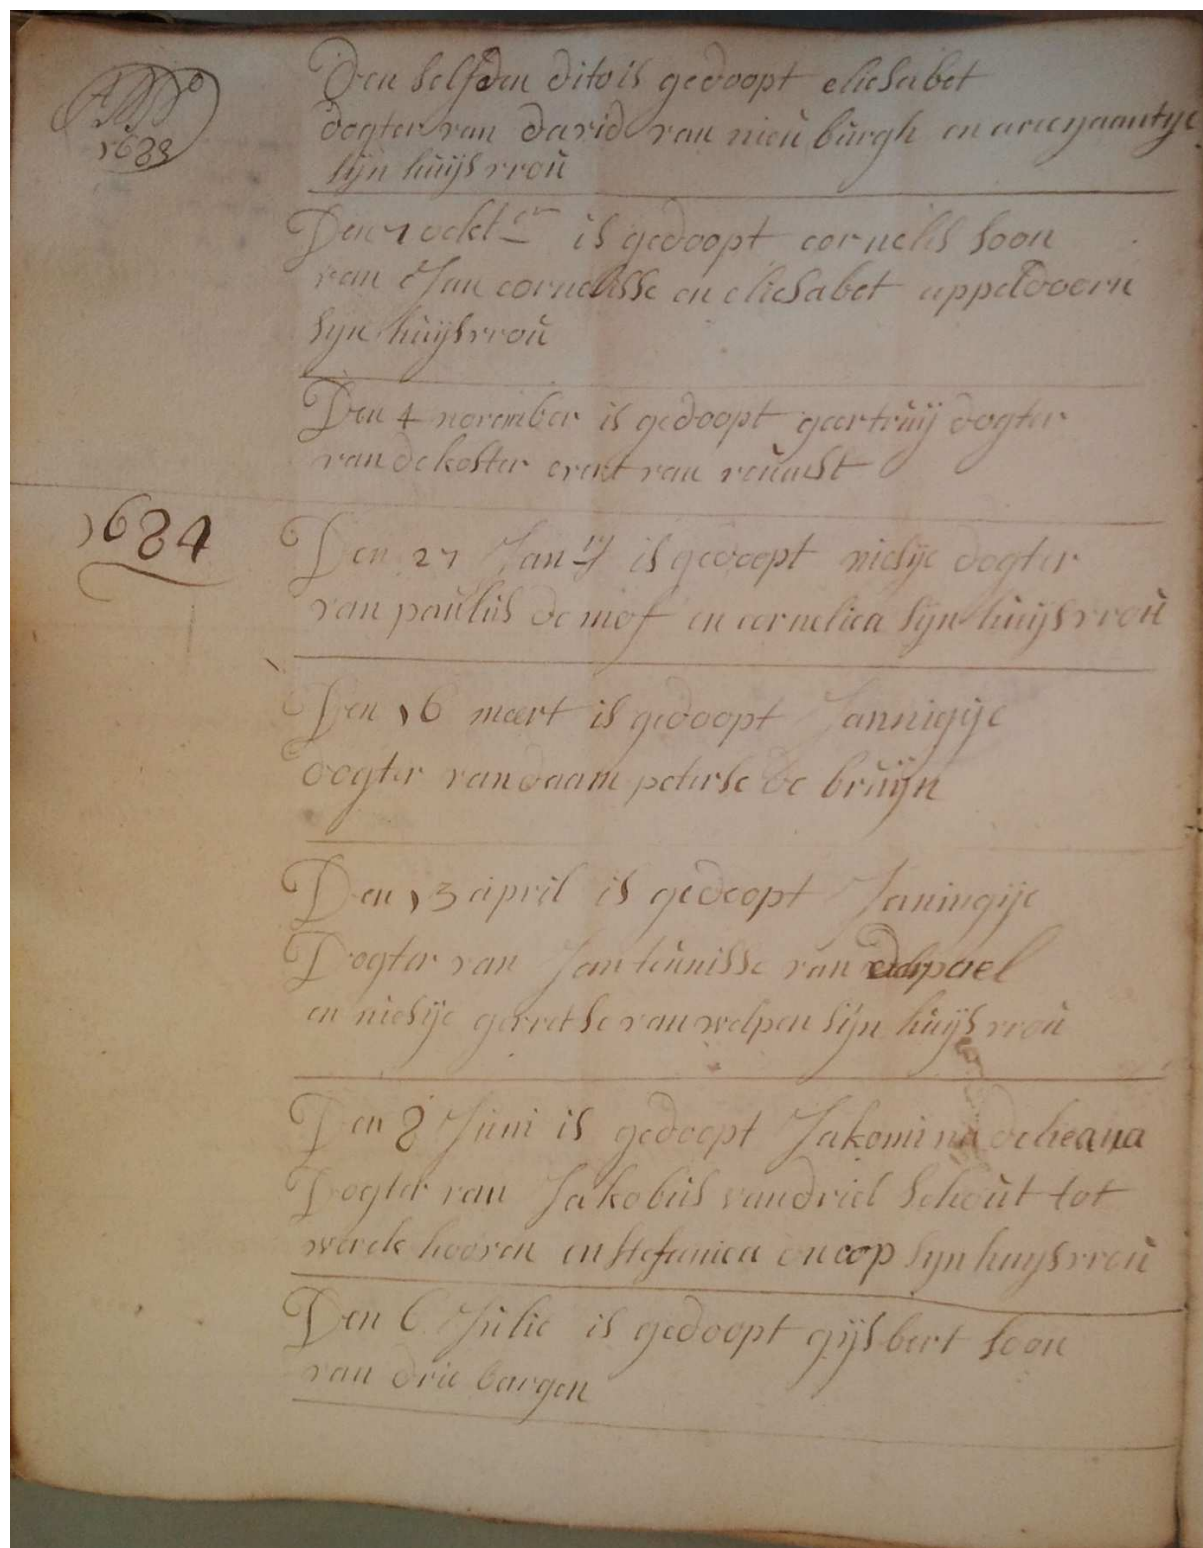 Anno
1683
Den selfden dito is gedoopt eliesabet
dogter van david van nieuburgh en arieyaantye
sijn huijsvrou
Den 7 ockt er is gedoopt cornelis soon
van Jan cornelisse en eliesabet appeldoorn
sijn huijsvrou
Den 4 november is gedoopt geertruij dogter
van de koster evert van
1684
Den 27 Jan ry is gedoopt niesije dogter
van paulus de mof en cornelica sijn huijsvrou
Den 16 maert is gedoopt Jannigije
dogter van daam peterse de bruijn
Den 13 april is gedoopt Janingije
Dogter van Jan teunisse van
en niesije gerretse van welpen sijn huijsvrou
Den 8 Juni is gedoopt Jakomina
Dogter van Jakobus van driel schout tot
werckhooven en stefanica oncoop sijn huijsvrou
Den 6 Julie is gedoopt gijsbert soon
van drie bargen